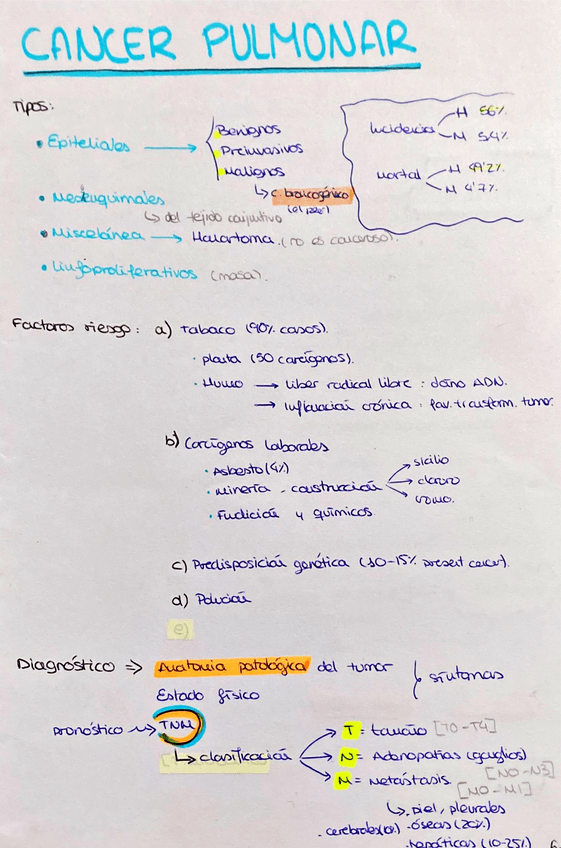 CANCER PULMONAR
Tipos:
• Epiteliales → Benignos
Preinvasivos
Malignos
↳ c. broncogénico
• Mesenquimales
↳ del tejido conjuntivo
• Miscelánea → Hamartoma (no es canceroso).
• Linfoproliferativos (masa).
Incidencia H 56%
M 54%
Mortal H 49'2%
M 4'7%
Factores riesgo: a) Tabaco (90% casos).
· planta (50 carcígenos).
· Humo → liber radical libre: daño ADN.
→ Inflamación crónica: fav. transform. tumor.
b) Carcígenos laborales
· Asbesto (4%)
· minería - construcción → sicilio
→ cloruro
→ cromo.
· Fundición y químicos
c) Predisposición genética (10-15% present cancer).
d) Polución
e)
Diagnóstico ⇒ Anatomía patológica del tumor
Estado físico
síntomas
pronóstico → TNM
↳ clasificación → T = tamaño [T0-T4]
→ N = Adenopatías (ganglios) [N0-N3]
→ M = Metástasis. [M0-M1]
↳ piel, pleurales
· cerebrales · óseas (20%)
· hepáticas (10-25%) 6